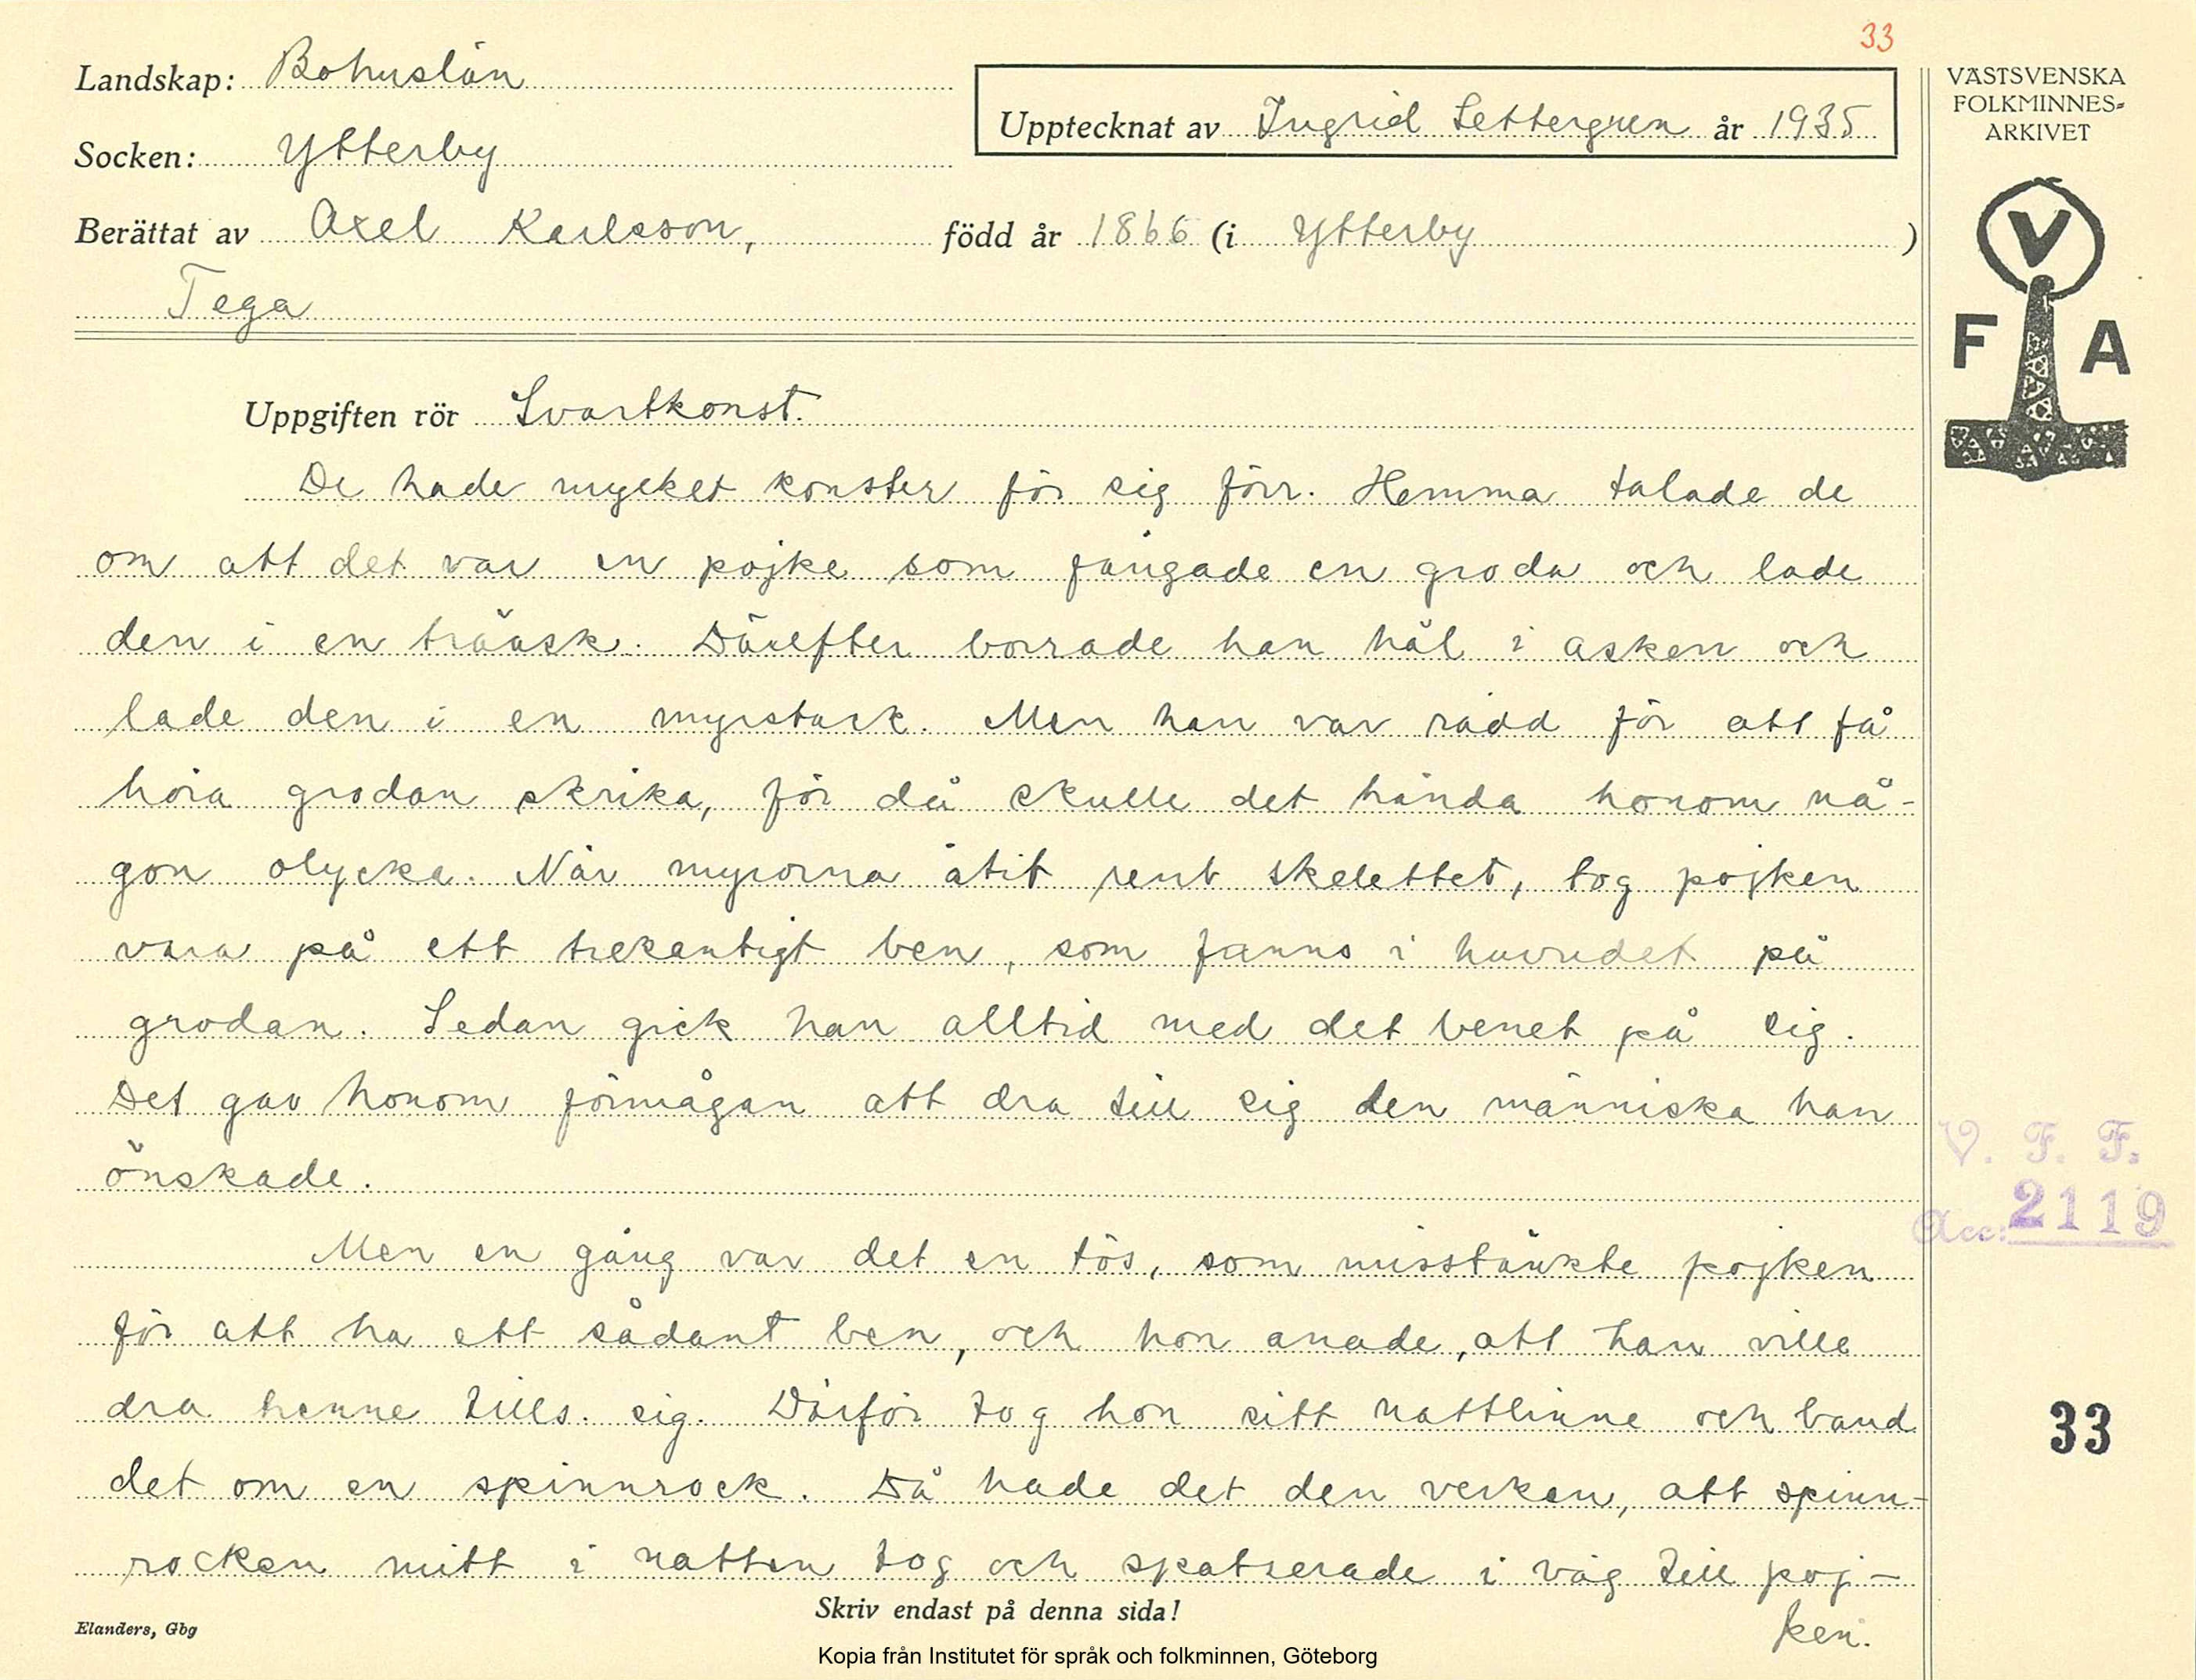 33
Landskap: Bohuslän
Socken: Ytterby
Upptecknat av Ingrid Settergren år 1935
VÄSTSVENSKA
FOLKMINNES-
ARKIVET
V
F A
Berättat av Axel Karlsson, född år 1866 (i Ytterby )
Tega
Uppgiften rör Svartkonst.
De hade mycket konster för sig förr. Hemma talade de
om att det var en pojke som fångade en groda och lade
den i en träask. Därefter borrade han hål i asken och
lade den i en myrstack. Men han var rädd för att få
höra grodan skrika, för då skulle det hända honom nå-
gon olycka. När myrorna ätit rent skelettet, tog pojken
vara på ett trekantigt ben, som fanns i huvudet på
grodan. Sedan gick han alltid med det benet på sig.
Det gav honom förmågan att dra till sig den människa han
önskade.
Men en gång var det en tös, som misstänkte pojken
för att ha ett sådant ben, och hon anade, att han ville
dra henne tills. sig. Därför tog hon sitt nattlinne och band
det om en spinnrock. Då hade det den verkan, att spinn-
rocken mitt i natten tog och spatserade i väg till poj-
ken.
V. F. F.
Acc: 2119
33
Skriv endast på denna sida!
Elanders, Gbg
Kopia från Institutet för språk och folkminnen, Göteborg